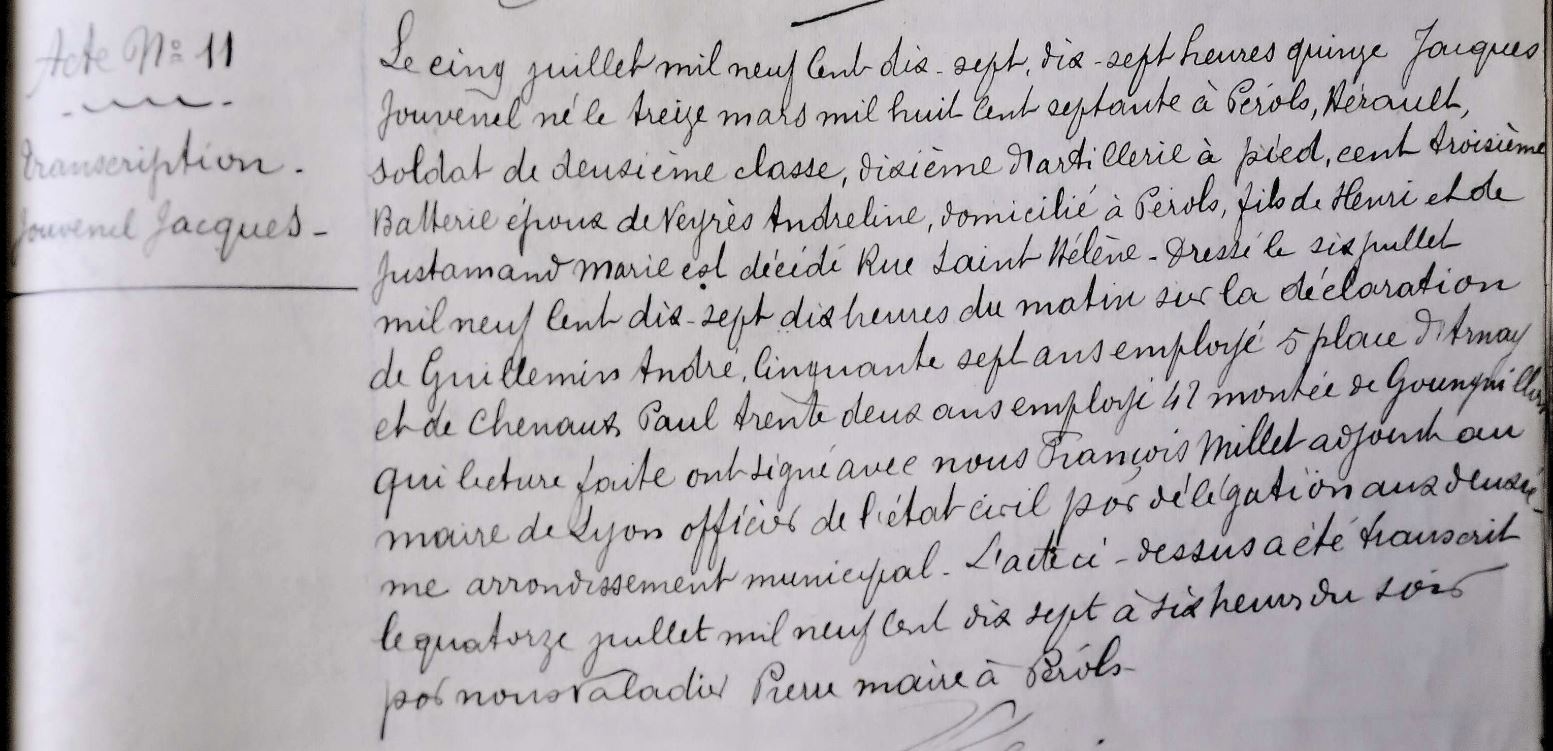 Acte Nº 11
Transcription.
Jouvenel Jacques-
Le cinq juillet mil neuf Cent dix-sept, dix-sept heures quinze Jacques
Jouvenel né le treize mars mil huit Cent septante à Pérols, Hérault,
soldat de deuxième classe, dixième d'artillerie à pied, cent troisième
Batterie époux de Veyrès Andreline, domicilié à Pérols, fils de Henri et de
Justamand Marie est décidé Rue Saint Hélène - Dressé le six juillet
mil neuf Cent dix-sept dix heures du matin sur la déclaration
de Guillemin André, Cinquante sept ans employé 5 place d'Arnay
et de Chenaux Paul trente deux ans employé 42 montée de
qui lecture faite ont signé avec nous François Millet adjoint au
maire de Lyon officier de l'état civil par délégation aux deuxiè-
me arrondissement municipal. L'acte ci-dessus a été transcrit
le quatorze juillet mil neuf Cent dix sept à six heures du soir
par nous Valadier Pierre maire à Pérols